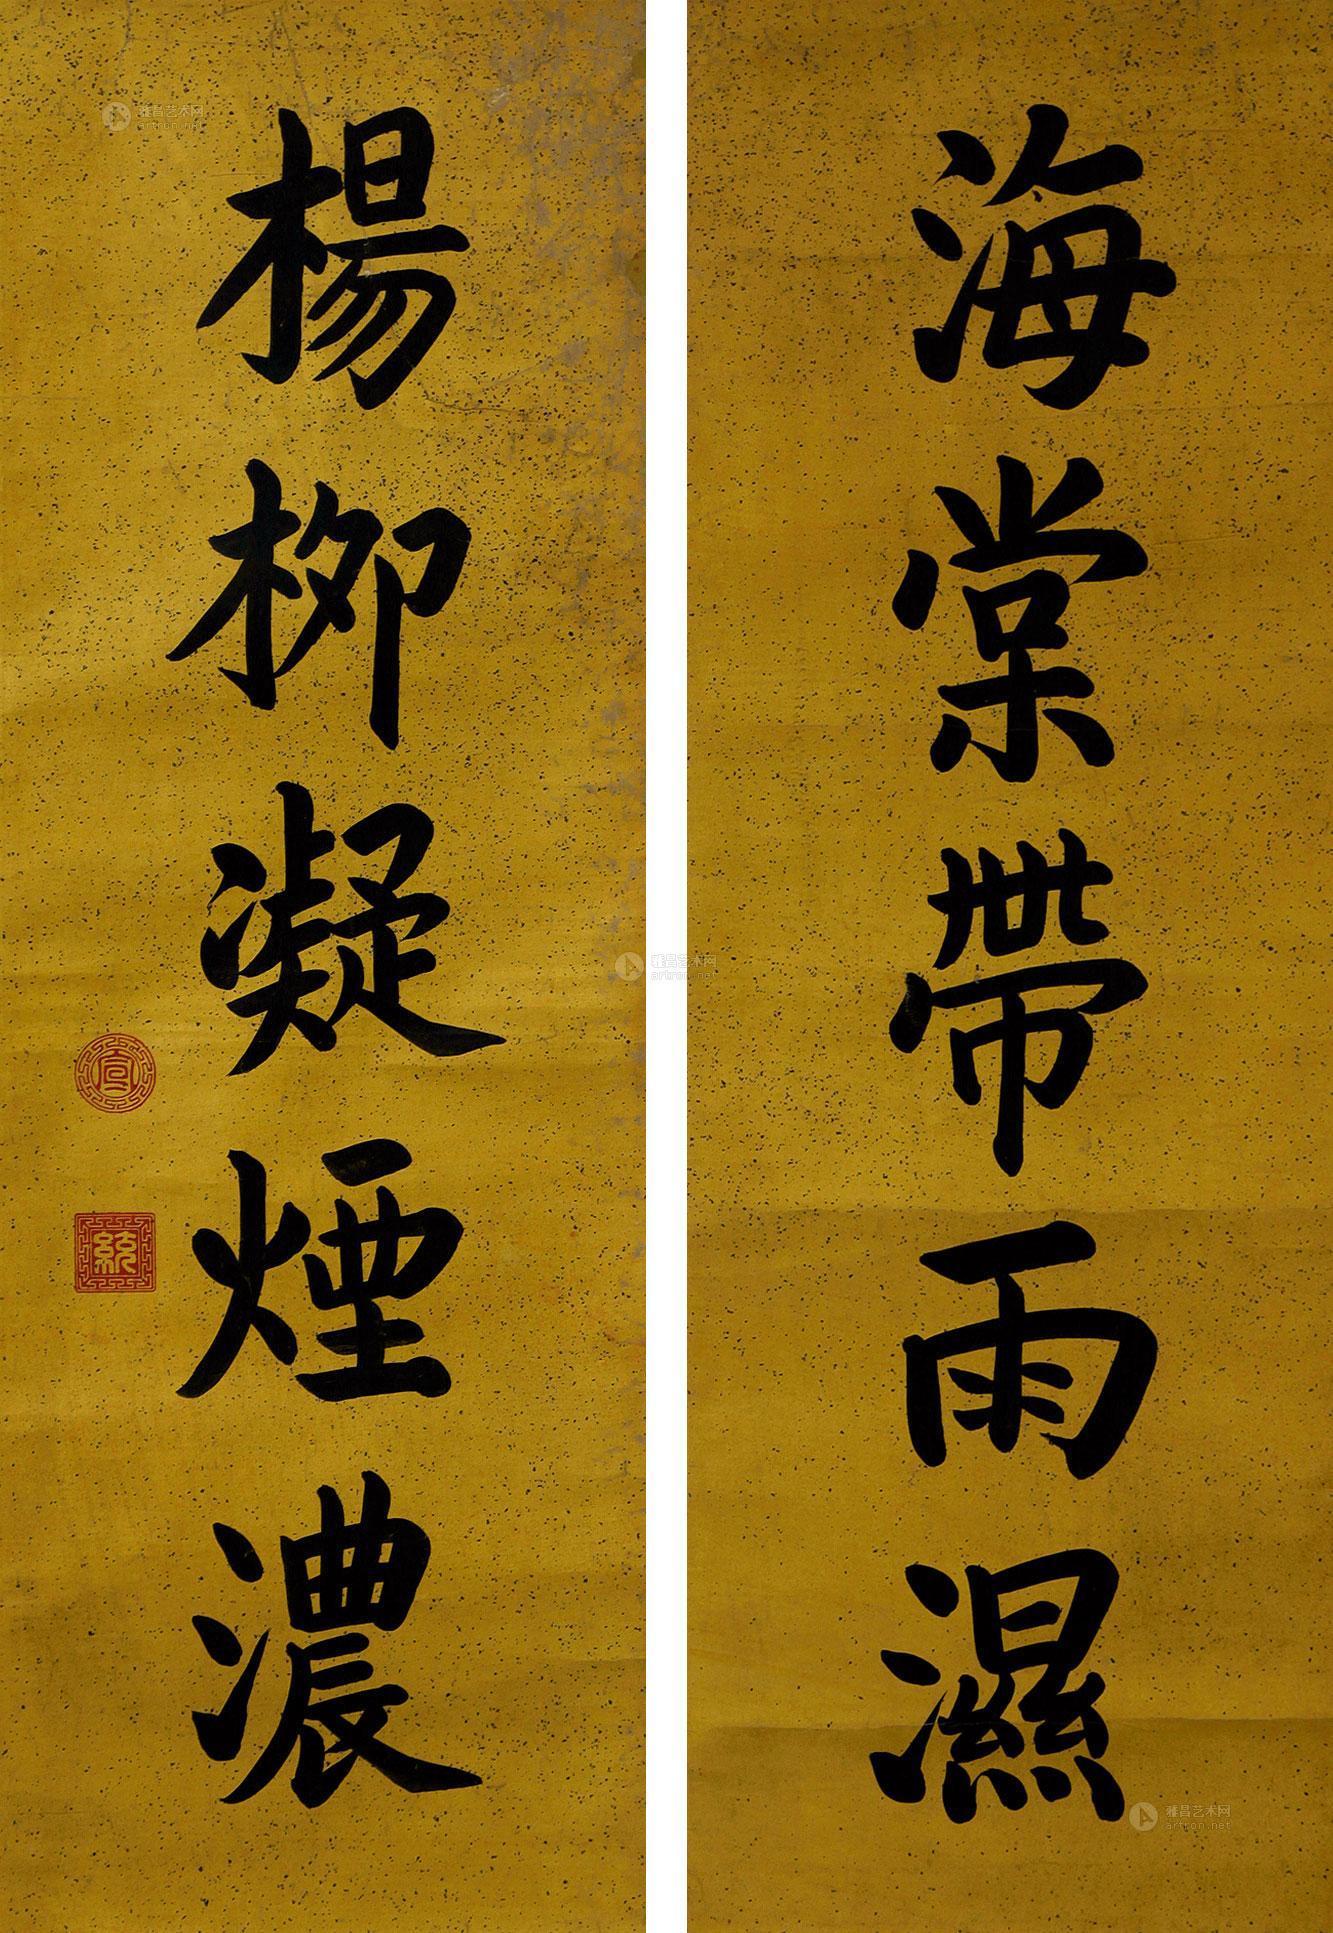 海棠帶雨濕
楊柳凝煙濃
宣
統
雅昌艺术网
artron.net
雅昌艺术网
artron.net
雅昌艺术网
artron.net